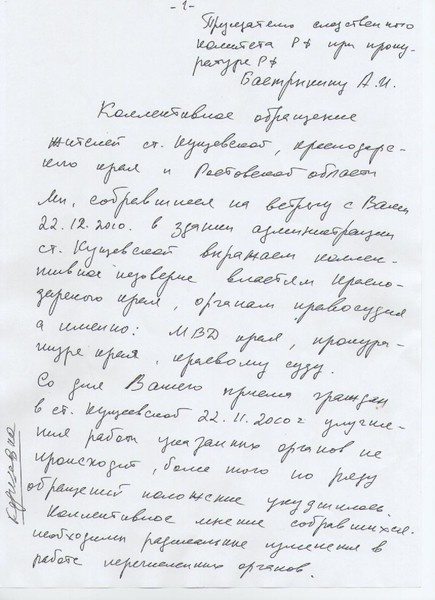 -1-
Председателю следственного
комитета РФ при проку-
ратуре РФ
Бастрыкину А.И.
Коллективное обращение
жителей ст. Кущевской, Краснодарс-
кого края и Ростовской области
Мы, собравшиеся на встречу с Вами
22.12.2010. в здании администрации
ст. Кущевской выражаем коллек-
тивное недоверие властям Красно-
дарского края, органам правосудия
а именно: МВД края, прокура-
туре края, краевому суду.
Со дня Вашего приема граждан
в ст. Кущевской 22.11.2010 г улучше-
ния работы указанных органов не
происходит, более того по ряду
обращений положение ухудшилось.
Коллективное мнение собравшихся.
необходимы радикальные изменения в
работе перечисленных органов.